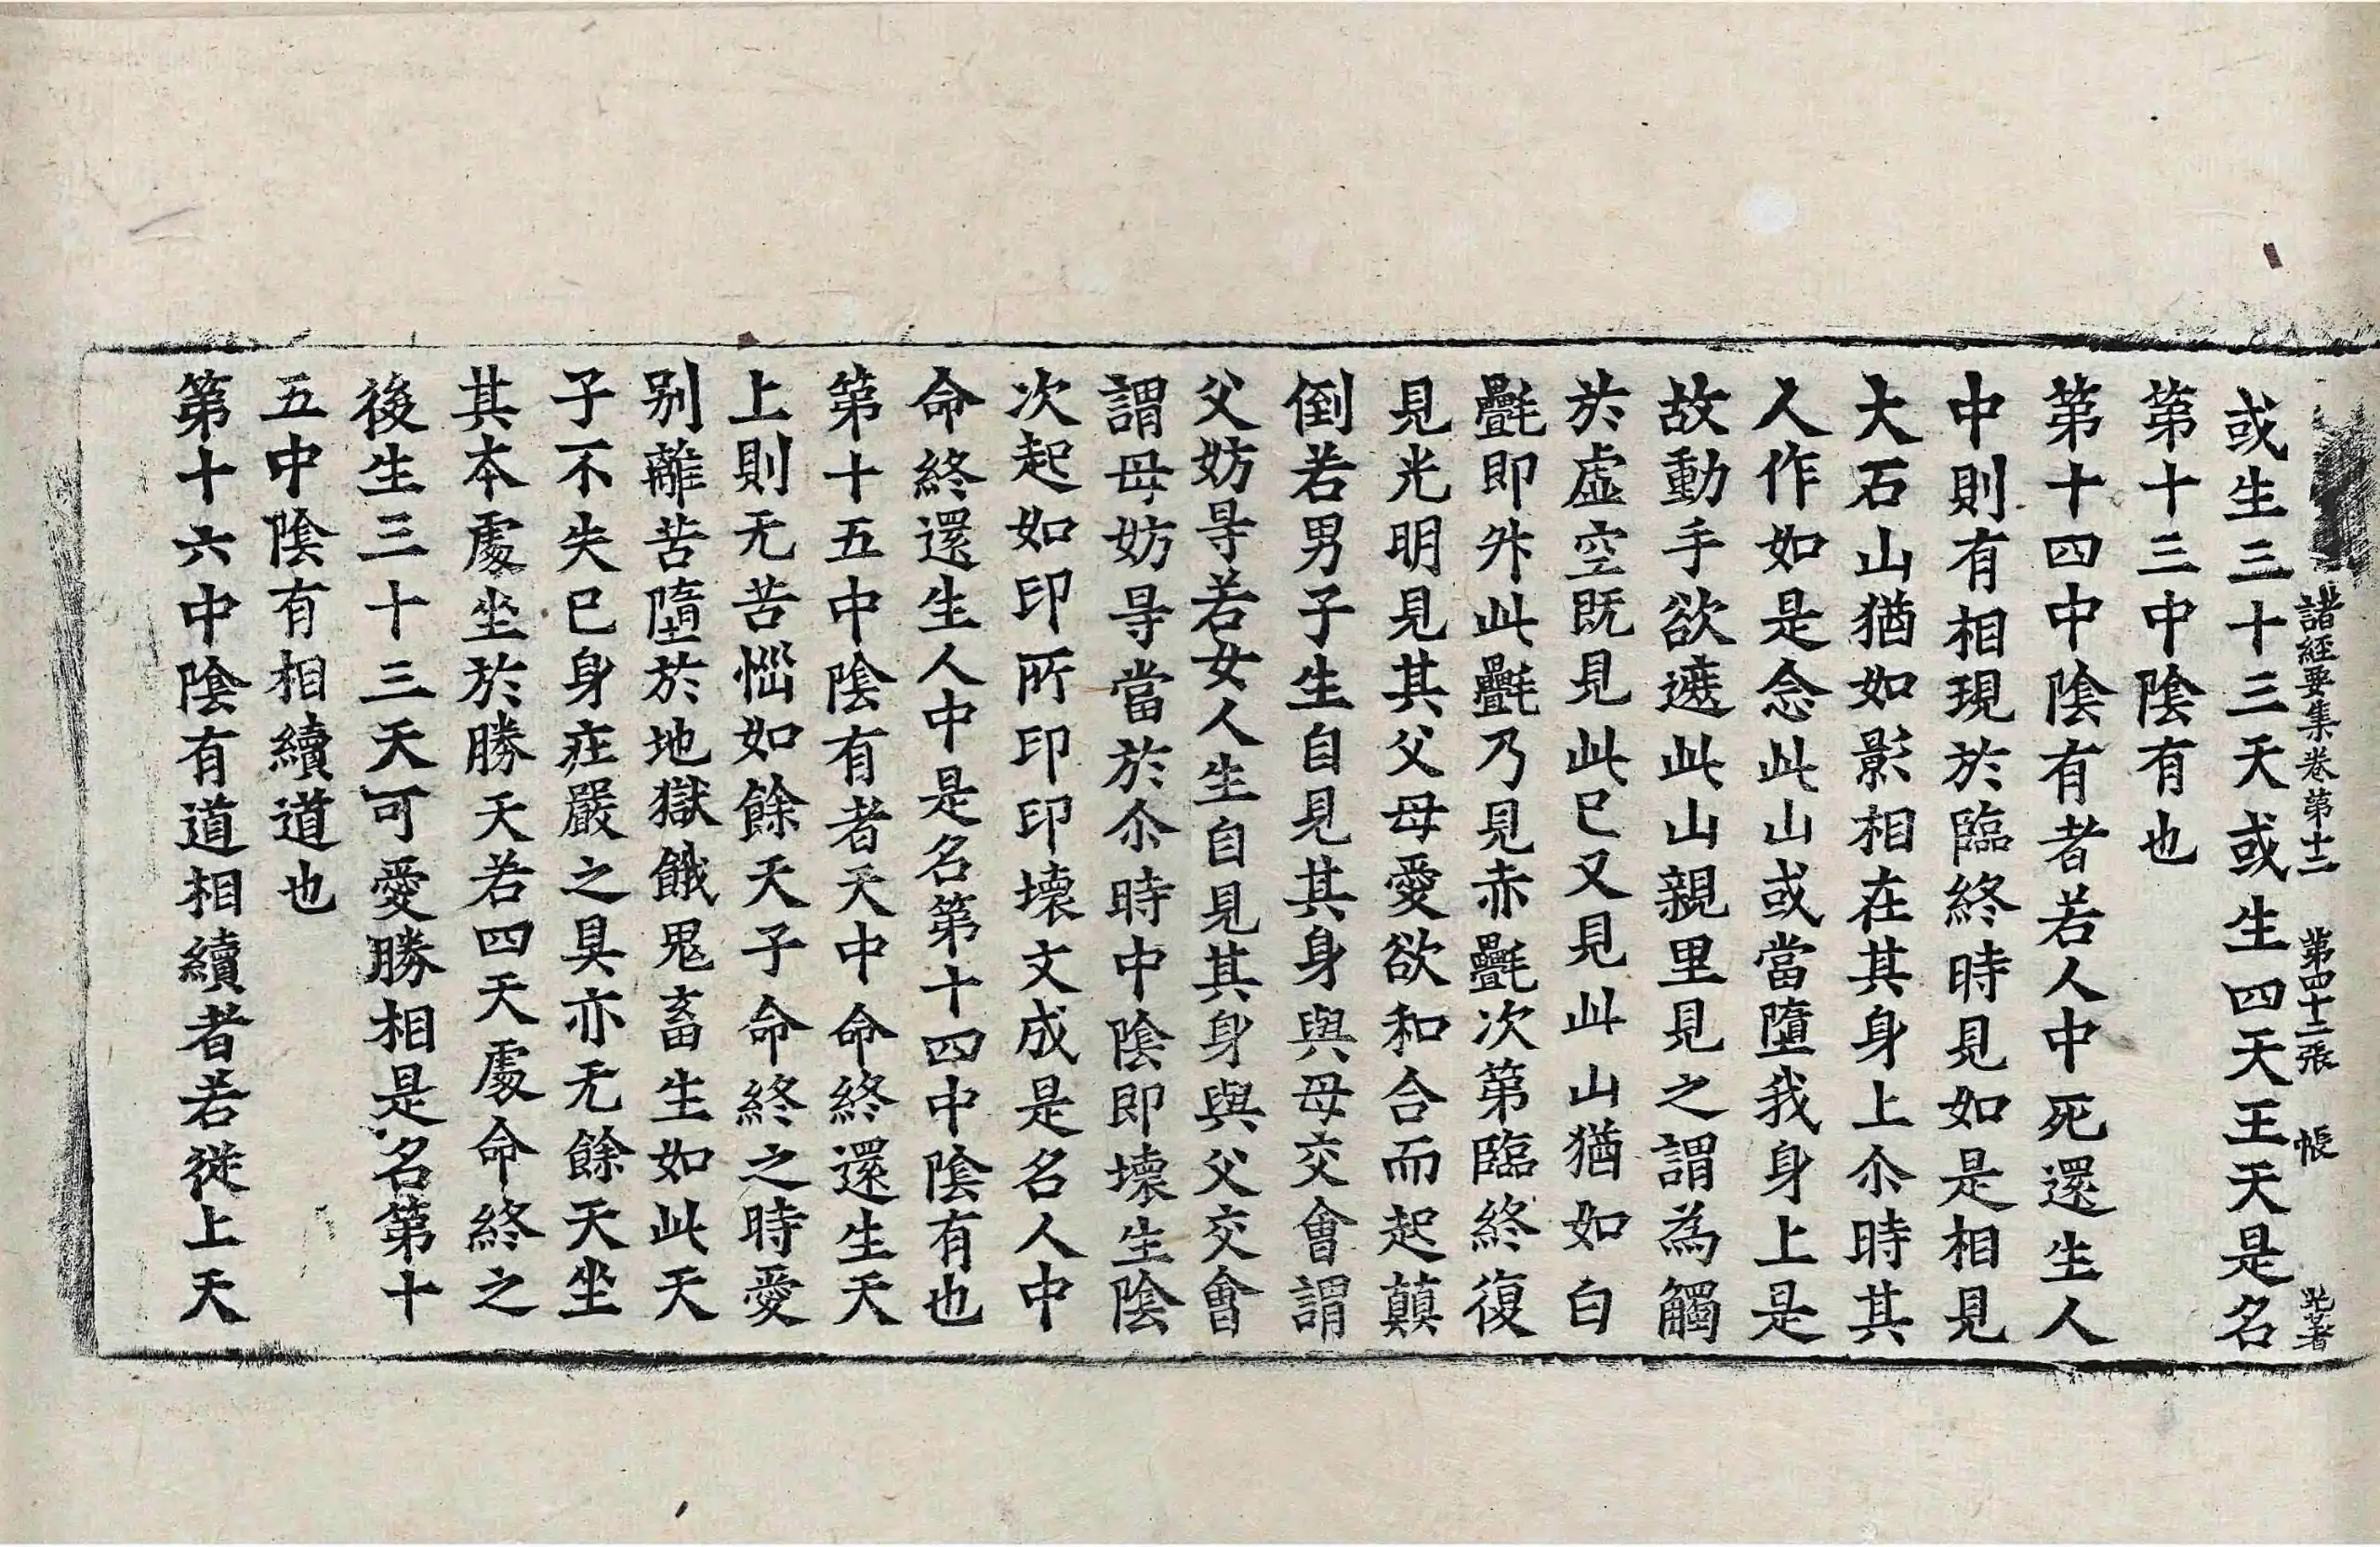 諸經要集卷第十二 第四十二張 帳
或生三十三天或生四天王天是名
第十三中陰有也
第十四中陰有者若人中死還生人
中則有相現於臨終時見如是相見
大石山猶如影相在其身上尒時其
人作如是念此山或當墮我身上是
故動手欲遮此山親里見之謂為觸
於虛空既見此已又見此山猶如白
㲲即昇此㲲乃見赤㲲次第臨終復
見光明見其父母愛欲和合而起顛
倒若男子生自見其身與母交會謂
父妨㝵若女人生自見其身與父交會
謂母妨㝵當於尒時中陰即壞生陰
次起如印所印印壞文成是名人中
命終還生人中是名第十四中陰有也
第十五中陰有者天中命終還生天
上則无苦惱如餘天子命終之時愛
别離苦墮於地獄餓鬼畜生如此天
子不失已身庄嚴之具亦无餘天坐
其本處坐於勝天若四天處命終之
後生三十三天可愛勝相是名第十
五中陰有相續道也
第十六中陰有道相續者若從上天